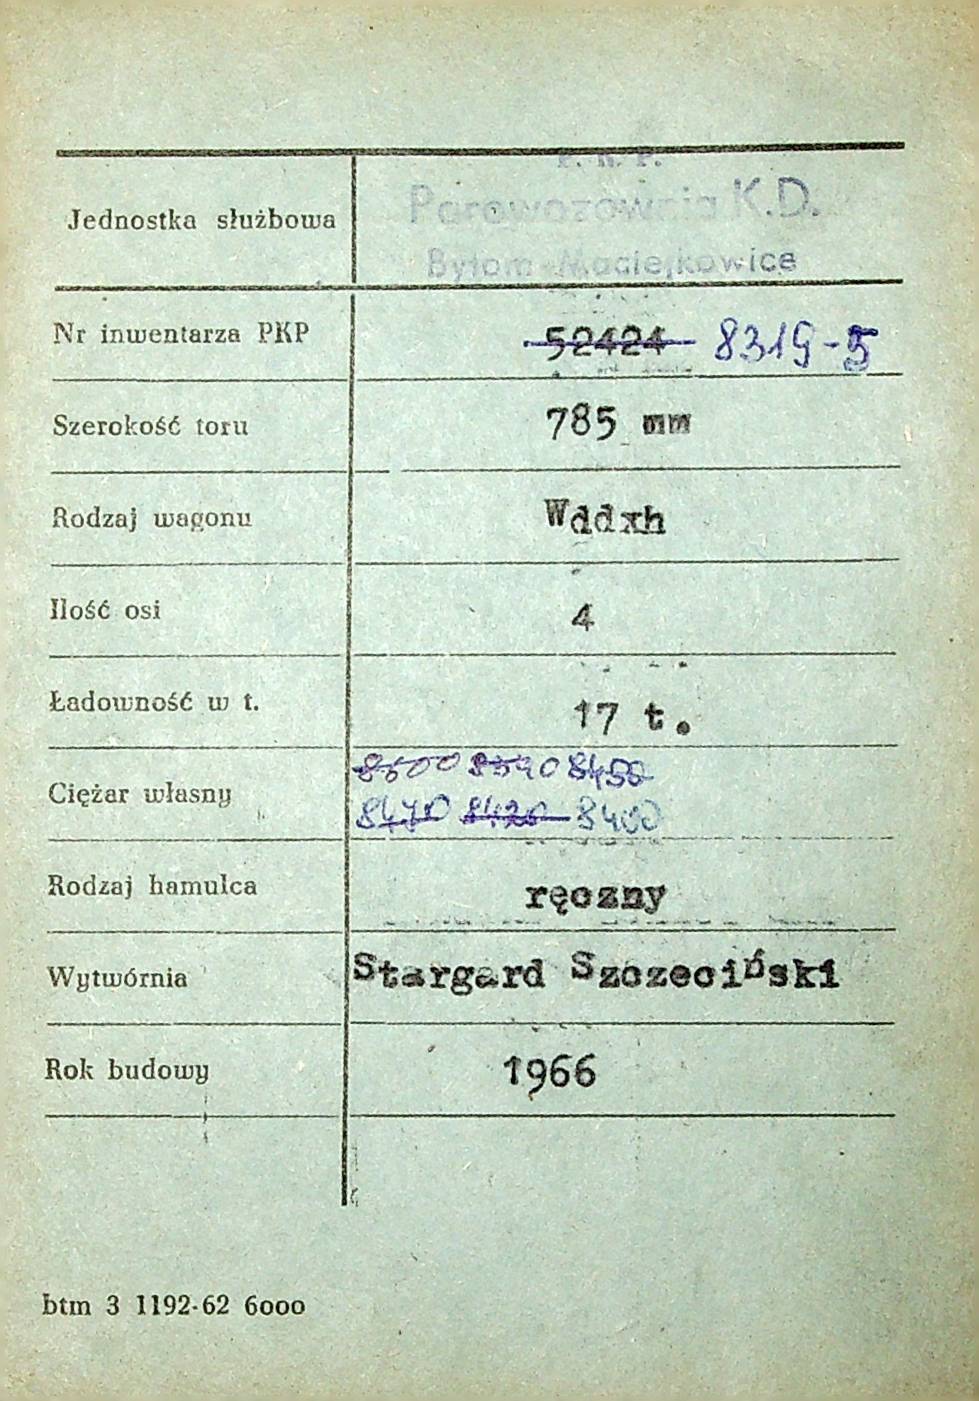 P. K. P.
Jednostka służbowa Parowozownia K.D.
Bytom-Maciejkowice
Nr inwentarza PKP 52424 8319-5
Szerokość toru 785 mm
Rodzaj wagonu Wddxh
Ilość osi 4
Ładowność w t. 17 t.
8500 8590 8450
Ciężar własny
8470 8420 8400
Rodzaj hamulca ręczny
Wytwórnia Stargard Szczeciński
Rok budowy 1966
btm 3 1192-62 6000